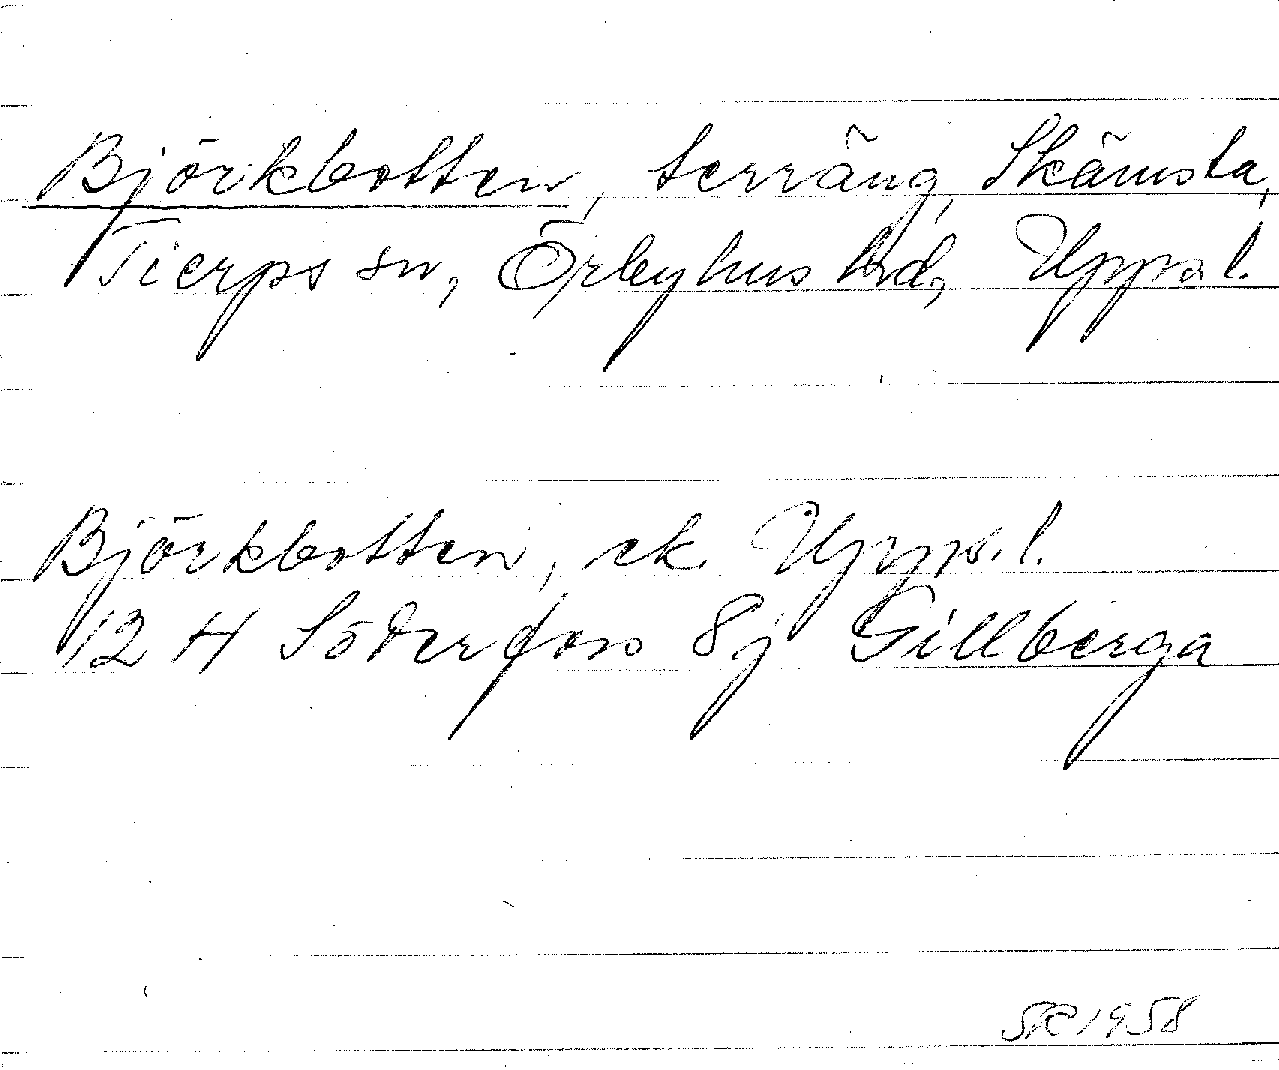 Björkbotten, terräng, Skämsta,
Tierps sn, Örbyhus hd, Upps. l.
Björkbotten, ek Upps. l.
12 H Söderfors 8j Gillberga
SK 1958